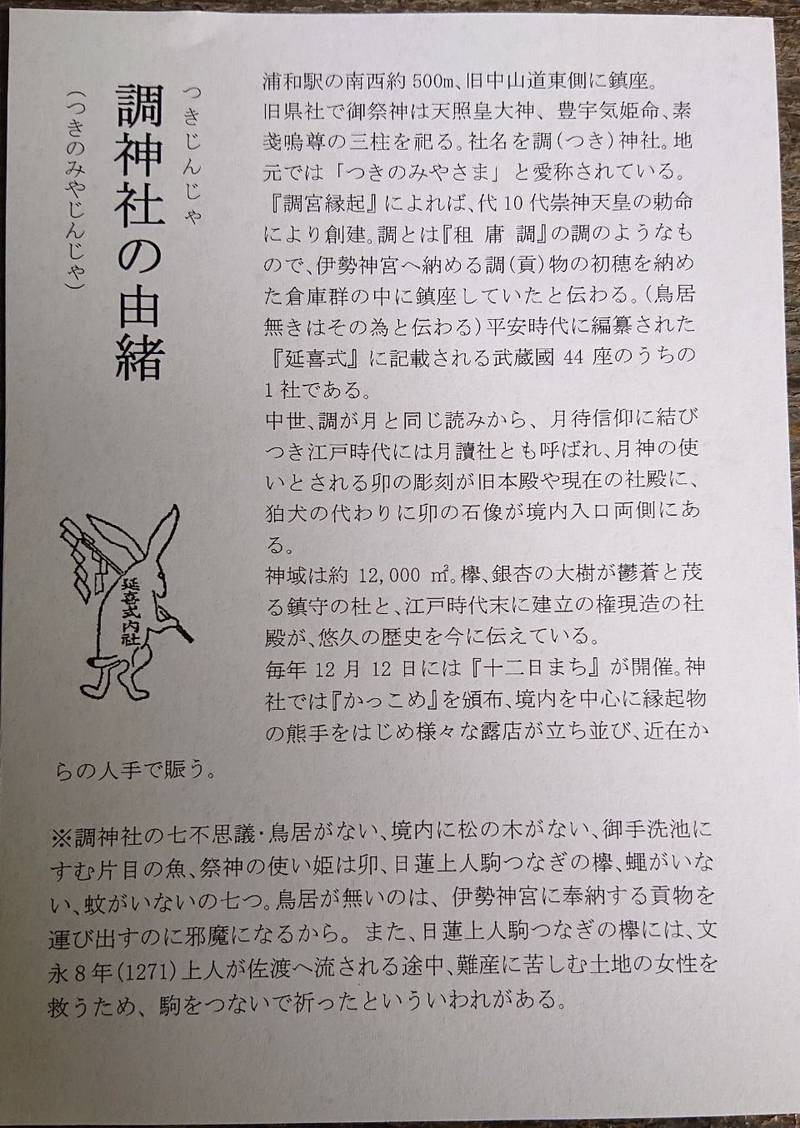 つきじんじゃ
調神社の由緒
(つきのみやじんじゃ)
浦和駅の南西約500m、旧中山道東側に鎮座。
旧県社で御祭神は天照皇大神、豊宇気姫命、素
戔嗚尊の三柱を祀る。社名を調(つき)神社。地
元では「つきのみやさま」と愛称されている。
『調宮縁起』によれば、代10代崇神天皇の勅命
により創建。調とは『租 庸 調』の調のようなも
ので、伊勢神宮へ納める調(貢)物の初穂を納め
た倉庫群の中に鎮座していたと伝わる。(鳥居
無きはその為と伝わる)平安時代に編纂された
『延喜式』に記載される武蔵國44座のうちの
1社である。
中世、調が月と同じ読みから、月待信仰に結び
つき江戸時代には月讀社とも呼ばれ、月神の使
いとされる卯の彫刻が旧本殿や現在の社殿に、
狛犬の代わりに卯の石像が境内入口両側にあ
る。
神域は約12,000㎡。欅、銀杏の大樹が鬱蒼と茂
る鎮守の杜と、江戸時代末に建立の権現造の社
殿が、悠久の歴史を今に伝えている。
毎年12月12日には『十二日まち』が開催。神
社では『かっこめ』を頒布、境内を中心に縁起物
の熊手をはじめ様々な露店が立ち並び、近在か
らの人手で賑う。
延喜式内社
※調神社の七不思議・鳥居がない、境内に松の木がない、御手洗池に
すむ片目の魚、祭神の使い姫は卯、日蓮上人駒つなぎの欅、蠅がいな
い、蚊がいないの七つ。鳥居が無いのは、伊勢神宮に奉納する貢物を
運び出すのに邪魔になるから。また、日蓮上人駒つなぎの欅には、文
永8年(1271)上人が佐渡へ流される途中、難産に苦しむ土地の女性を
救うため、駒をつないで祈ったといういわれがある。